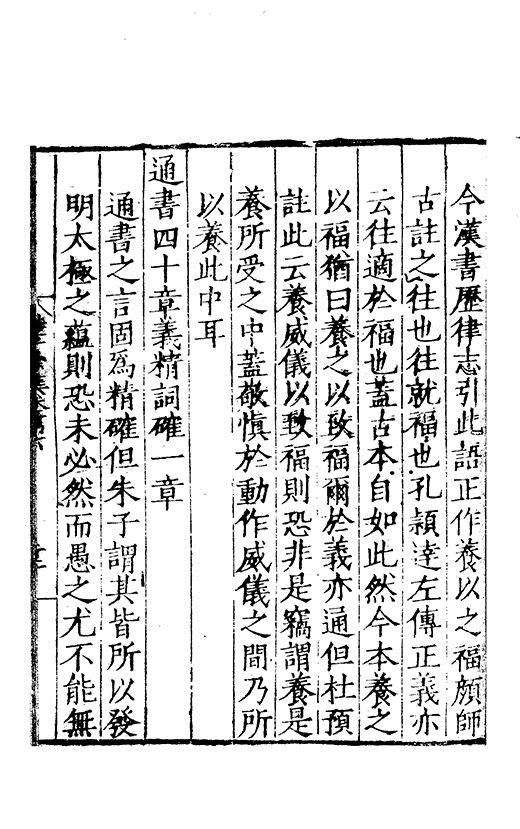 今漢書歷律志引此語正作養以之福顔師
古註之往也往就福也孔頴逹左傳正義亦
云往適於福也蓋古本自如此然今本養之
以福猶曰養之以致福爾於義亦通但杜預
註此云養威儀以致福則恐非是竊謂養是
養所受之中蓋敬慎於動作威儀之間乃所
以養此中耳
通書四十章義精詞確一章
通書之言固爲精確但朱子謂其皆所以發
明太極之蘊則恐未必然而愚之尤不能無